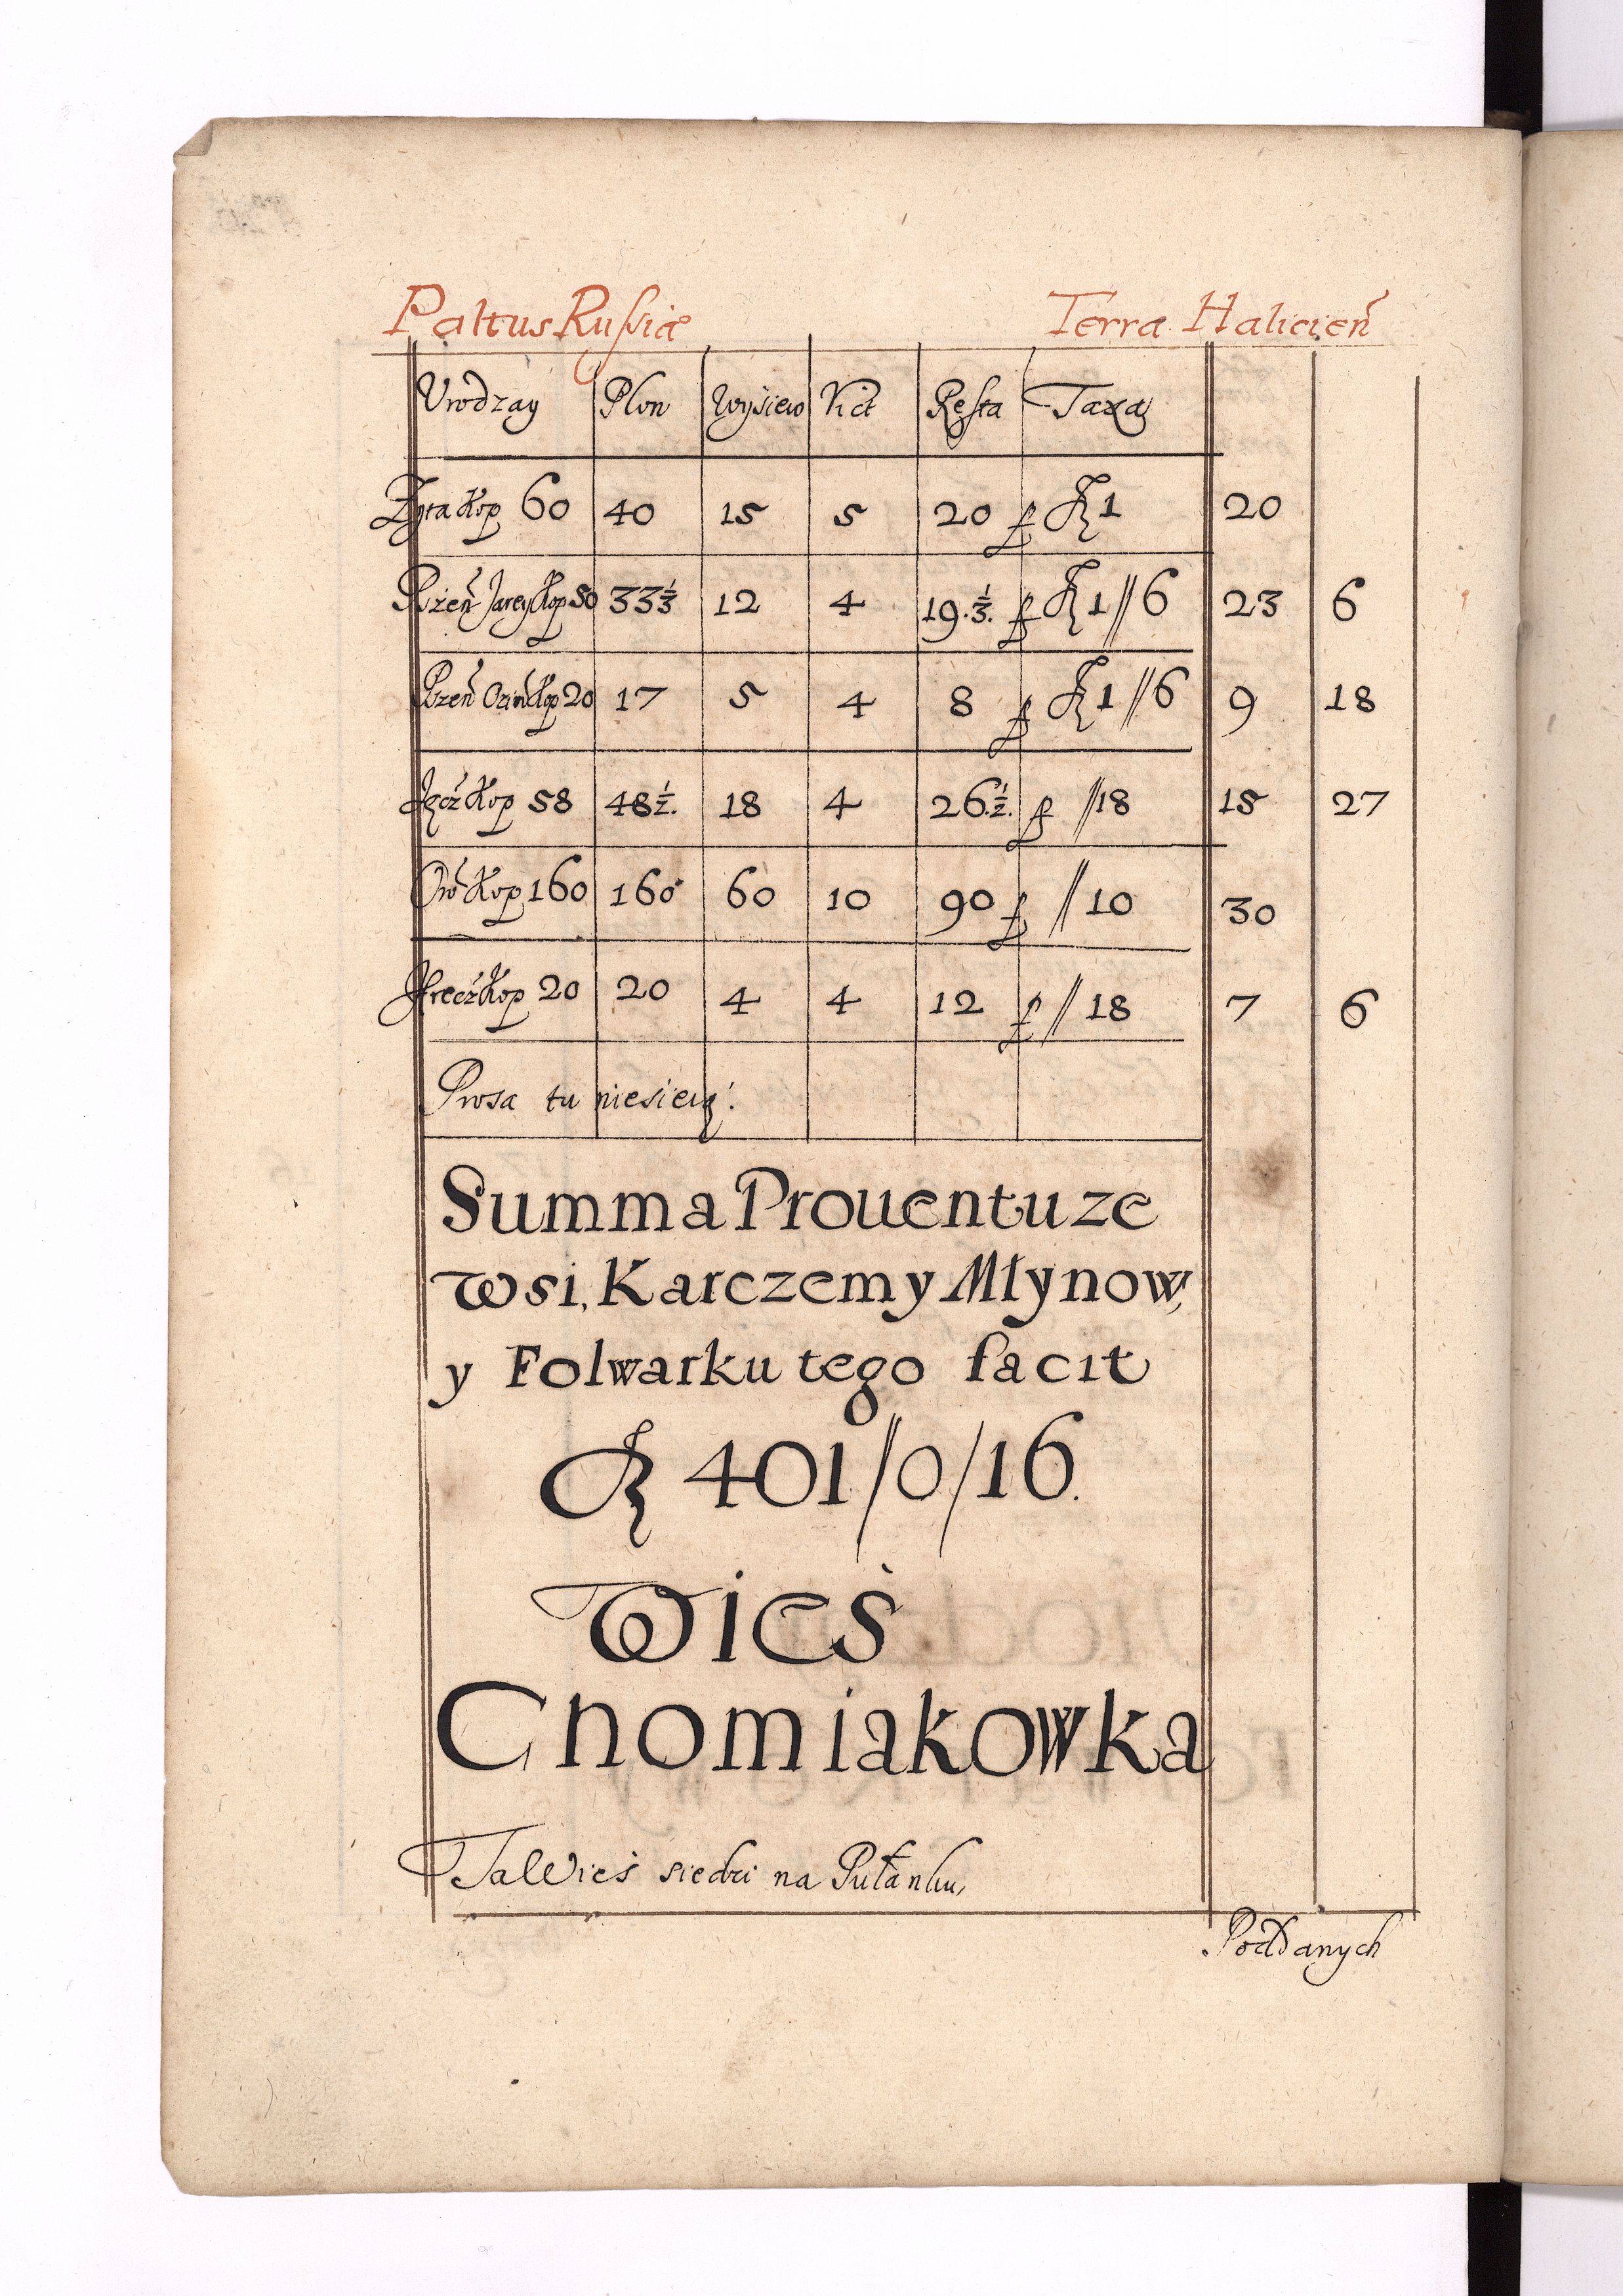 Paltus Russiæ Terra Halicień
Vrodzay Plon Wysiew Vict Resta Taxa
Zyta Kop 60 40 15 5 20 p fl 1 20
Pszeń Jarey Kop 50 33 1/3 12 4 19. 1/3. p fl 1//6 23 6
Pszeń Ozim Kop 20 17 5 4 8 p fl 1//6 9 18
Jęcź Kop 58 48 1/2. 18 4 26. 1/2. p //18 15 27
Ow Kop 160 160 60 10 90 p //10 30
Hrecź Kop 20 20 4 4 12 p //18 7 6
Prosa tu niesieią.
Summa Prouentu ze
wsi, Karczemy Młynow
y Folwarku tego facit
fl 401//0/16.
Wieś
Chomiakowka
Ta Wieś siedzi na
Poddanych